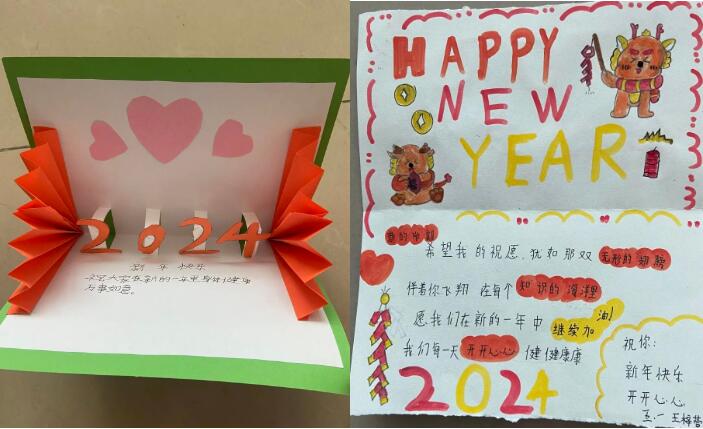 2024
新年快乐
祝大家在新的一年里身体健康
万事如意。
HAPPY
NEW
YEAR
希望我的祝愿，犹如那双无形的翅膀
伴着你飞翔 在每个知识的海洋里
愿我们在新的一年中 继续加油!
我们每一天 开开心心 健健康康
2024
祝你:
新年快乐
开开心心
五.一